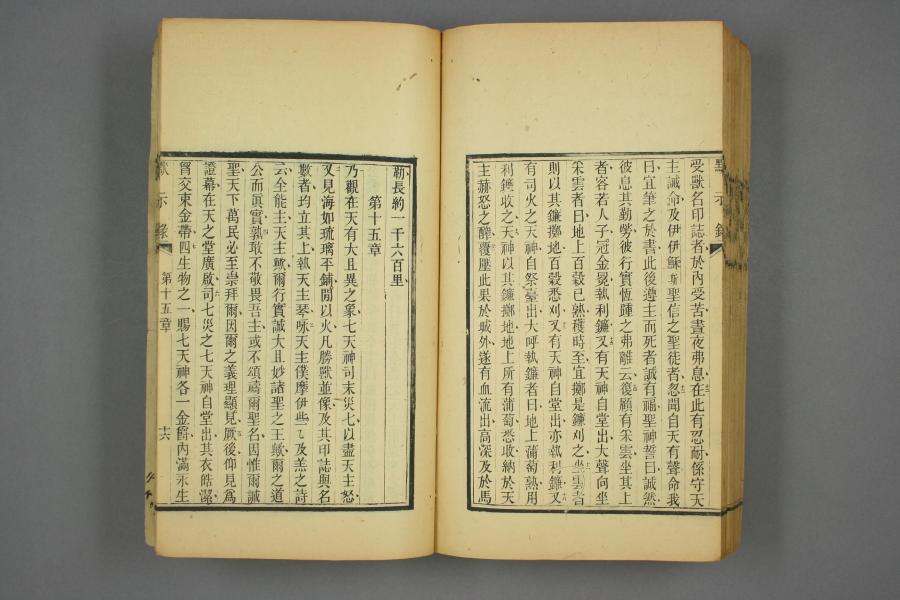 受獸名印誌者於內受苦晝夜弗息在此有忍耐係守天
主誡命及伊伊穌斯聖信之聖徒者忽聞自天有聲命我
曰宜筆之於書此後遵主而死者誠有福聖神誓曰誠然
彼息其勤勞彼行實恆踵之弗離云復顧有朵雲坐其上
者容若人子冠金冕執利鐮又有天神自堂出大聲向坐
朵雲者曰地上百穀已熟穫時至宜擲是鐮刈之坐雲者
則以其鐮擲地百穀悉刈又有天神自堂出亦執利鐮又
有司火之天神自祭臺出大呼執鐮者曰地上葡萄熟用
利鐮收之天神以其鐮擲地地上所有葡萄悉收納於天
主赫怒之醡覆壓此果於城外遂有血流出高深及於馬
勒長約一千六百里
第十五章
乃觀在天有大且異之象七天神司末災七以盡天主怒
又見海如琉璃平鋪間以火凡勝獸並像及其印誌與名
數者均立其上執天主琴咏天主僕摩伊些乙及羔之詩
云全能主天主歟爾行實誠大且妙諸聖之王歟爾之道
公而眞實孰敢不敬畏吾主或不頌禱爾聖名因惟爾誠
聖天下萬民必至崇拜爾因爾之義理顯見厥後仰見爲
證幕在天之堂廣啟司七災之七天神自堂出其衣皓潔
胷交束金帶四生物之一賜七天神各一金爵內滿永生
示錄
第十五章
十六